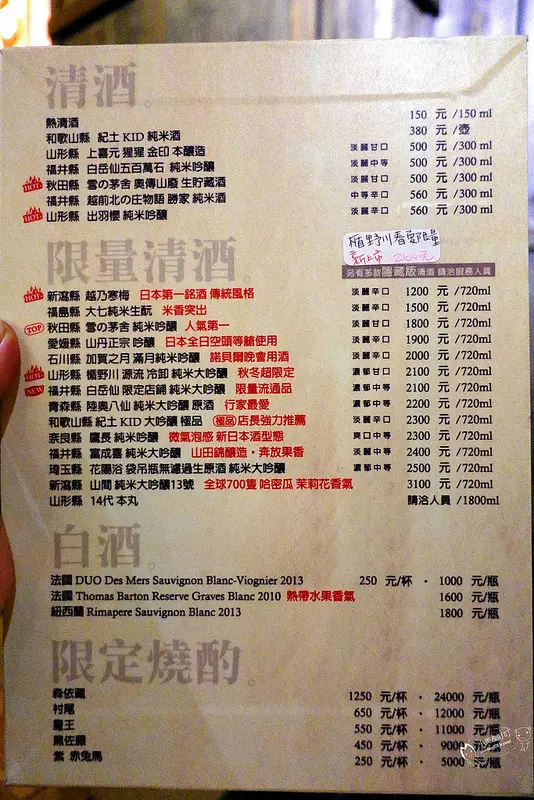 清酒。
熱清酒 150 元 /150 ml
和歌山縣 紀土 KID 純米酒 380 元 /壺
山形縣 上喜元 猩猩 金印 本釀造 淡麗甘口 500 元 /300 ml
福井縣 白岳仙五百萬石 純米吟釀 淡麗中等 500 元 /300 ml
HOT 秋田縣 雪の茅舍 奧傳山廢 生貯藏酒 淡麗甘口 500 元 /300 ml
福井縣 越前北の庄物語 勝家 純米酒 中等辛口 560 元 /300 ml
HOT 山形縣 出羽櫻 純米吟釀 淡麗辛口 560 元 /300 ml
楯野川春夏限量
新上市 2100元
限量清酒。
另有多款隱藏版清酒 請洽服務人員
HOT 新瀉縣 越乃寒梅 日本第一銘酒 傳統風格 淡麗辛口 1200 元 /720ml
福島縣 大七純米生酛 米香突出 淡麗辛口 1500 元 /720ml
TOP 秋田縣 雪の茅舍 純米吟釀 人氣第一 淡麗甘口 1800 元 /720ml
愛媛縣 山丹正宗 吟釀 日本全日空頭等艙使用 淡麗辛口 1900 元 /720ml
石川縣 加賀之月 滿月純米吟釀 諾貝爾晚會用酒 淡麗辛口 2000 元 /720ml
HOT 山形縣 楯野川 源流 冷卸 純米大吟釀 秋冬超限定 濃郁甘口 2100 元 /720ml
NEW 福井縣 白岳仙 限定店鋪 純米大吟釀 限量流通品 濃郁中等 2100 元 /720ml
青森縣 陸奧八仙 純米大吟釀 原酒 行家最愛 濃郁中等 2200 元 /720ml
和歌山縣 紀土 KID 大吟釀 極品 極品 店長強力推薦 淡麗辛口 2300 元 /720ml
奈良縣 鷹長 純米吟釀 微氣泡感 新日本酒型態 爽口中等 2300 元 /720ml
福井縣 富成喜 純米大吟釀 山田錦釀造・奔放果香 淡麗中等 2400 元 /720ml
琦玉縣 花陽浴 袋吊瓶無濾過生原酒 純米大吟釀 濃郁中等 2500 元 /720ml
新瀉縣 山間 純米大吟釀13號 全球700隻 哈密瓜 茉莉花香氣 3100 元 /720ml
山形縣 14代 本丸 請洽人員 /1800ml
白酒。
法國 DUO Des Mers Sauvignon Blanc-Viognier 2013 250 元/杯 · 1000 元/瓶
法國 Thomas Barton Reserve Graves Blanc 2010 熱帶水果香氣 1600 元/瓶
紐西蘭 Rimapere Sauvignon Blanc 2013 1800 元/瓶
限定燒酌。
森依藏 1250 元/杯 · 24000 元/瓶
村尾 650 元/杯 · 12000 元/瓶
魔王 550 元/杯 · 11000 元/瓶
黑佐藤 450 元/杯 · 9000 元/瓶
紫 赤兔馬 250 元/杯 · 5000 元/瓶